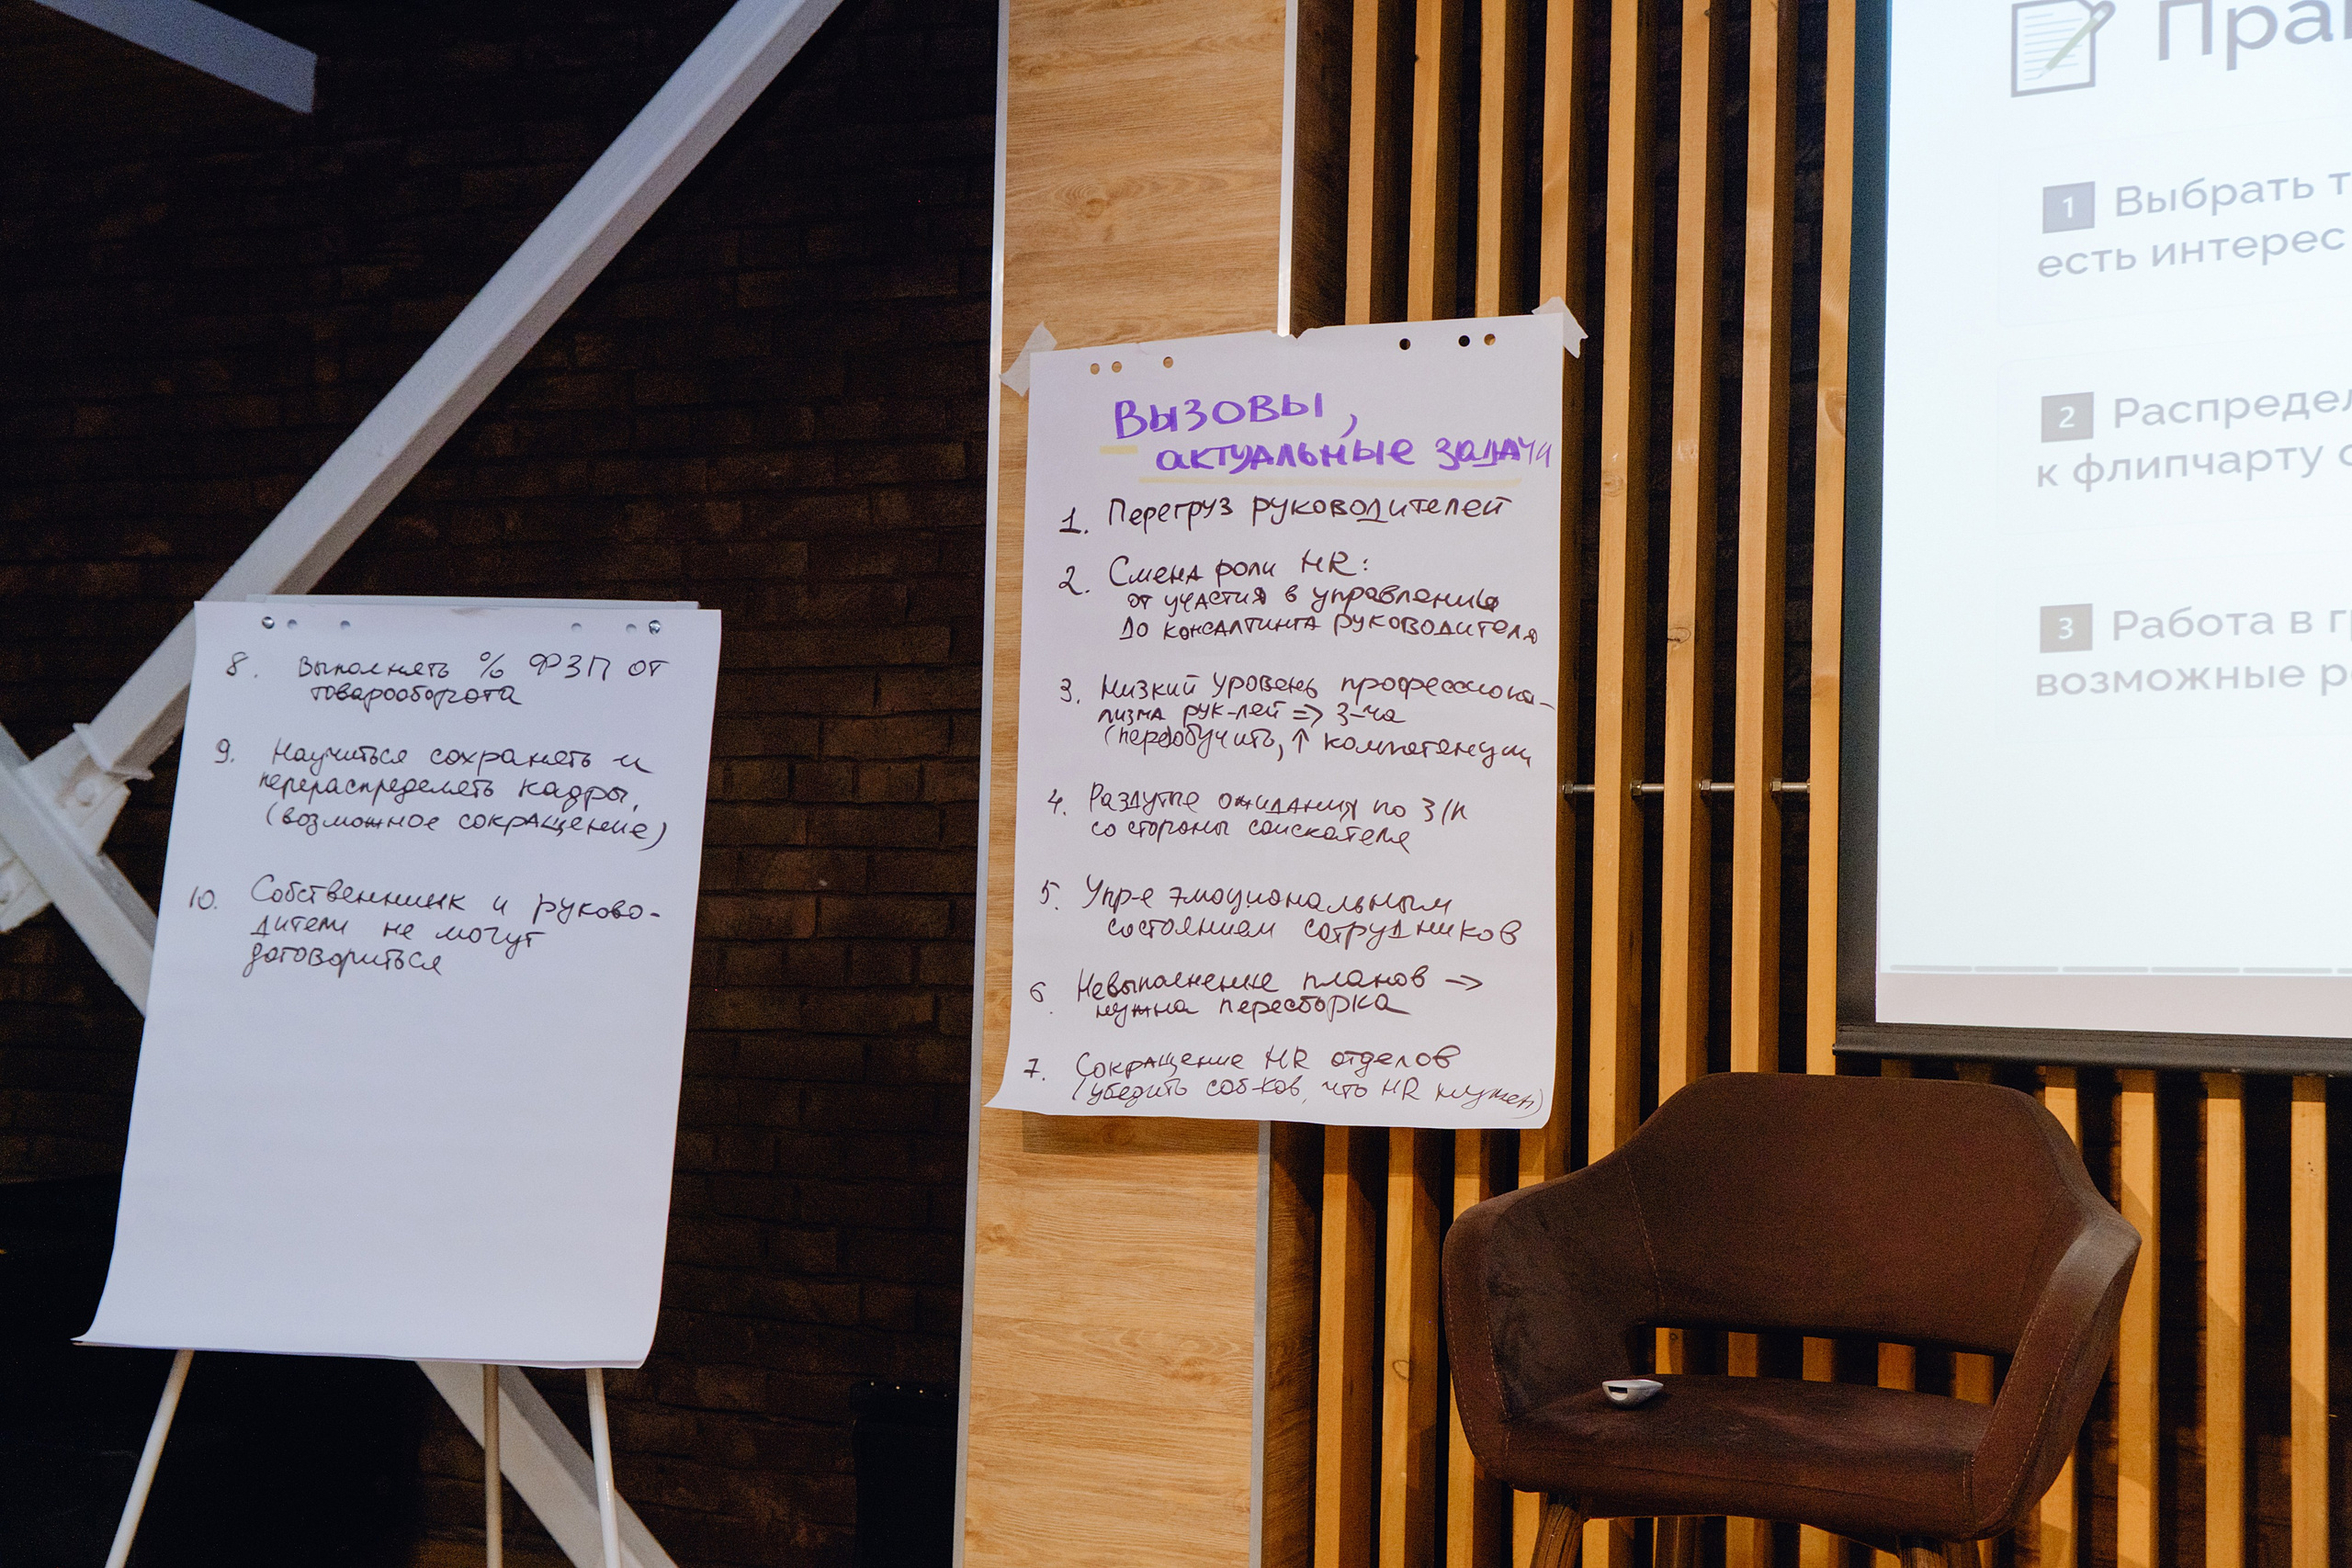 Вызовы,
актуальные задачи
1. Перегруз руководителей
2. Смена роли HR:
от участия в управлении
до консалтинга руководителя
3. Низкий уровень профессиона-
лизма рук-лей => з-ча
(переобучить, ↑ компетенции
4. Раздутые ожидания по з/п
со стороны соискателя
5. Упр-е эмоциональным
состоянием сотрудников
6. Невыполнение планов →
нужна пересборка
7. Сокращение HR отделов
(убедить соб-ков, что HR нужен)
8. Выполнять % ФЗП от
товарооборота
9. Научиться сохранять и
перераспределять кадры,
(возможное сокращение)
10. Собственник и руково-
дители не могут
договориться
Пра
1 Выбрать т
есть интерес
2 Распредел
к флипчарту с
3 Работа в г
возможные р